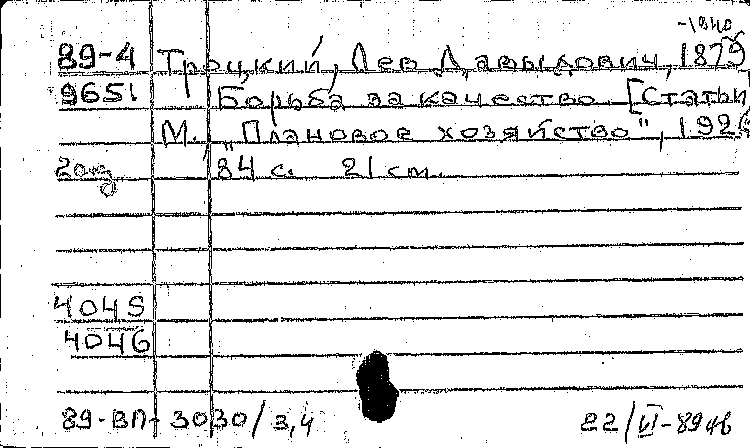 -1940
89-4 Троцкий, Лев Давыдович, 1879
9651 Борьба за качество. [Статьи]
М., „Плановое хозяйство", 1926
2 экз 84 с. 21 см.
4045
4046
89-ВП-3030/3,4 22/VI-89